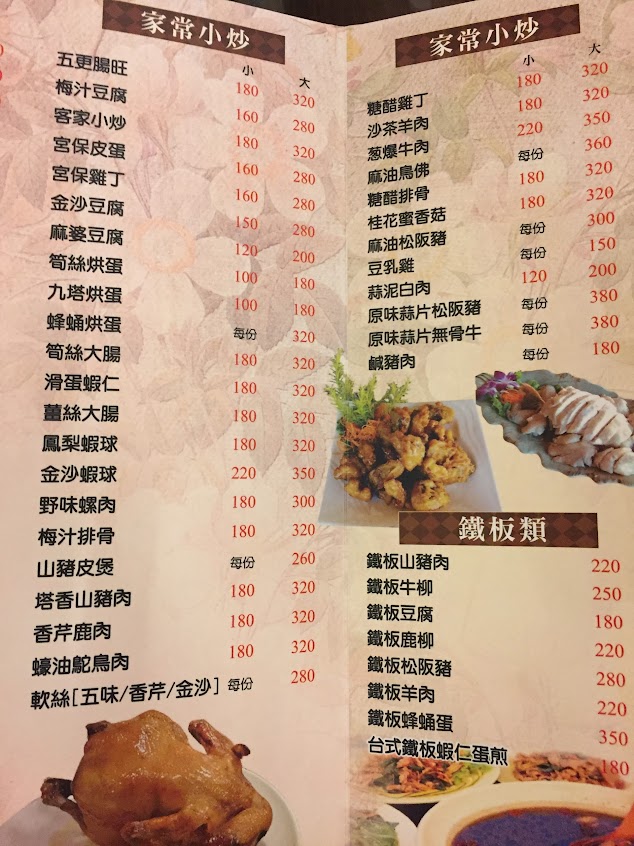 家常小炒
小 大
五更腸旺 180 320
梅汁豆腐 160 280
客家小炒 180 320
宮保皮蛋 160 280
宮保雞丁 160 280
金沙豆腐 150 280
麻婆豆腐 120 200
筍絲烘蛋 100 180
九塔烘蛋 100 180
蜂蛹烘蛋 每份 320
筍絲大腸 180 320
滑蛋蝦仁 180 320
薑絲大腸 180 320
鳳梨蝦球 180 320
金沙蝦球 220 350
野味螺肉 180 300
梅汁排骨 180 320
山豬皮煲 每份 260
塔香山豬肉 180 320
香芹鹿肉 180 320
蠔油鴕鳥肉 180 320
軟絲[五味/香芹/金沙] 每份 280
家常小炒
小 大
糖醋雞丁 180 320
沙茶羊肉 180 320
蔥爆牛肉 220 350
麻油鳥佛 每份 360
糖醋排骨 180 320
桂花蜜香菇 180 320
麻油松阪豬 每份 300
豆乳雞 每份 150
蒜泥白肉 120 200
原味蒜片松阪豬 每份 380
原味蒜片無骨牛 每份 380
鹹豬肉 每份 180
鐵板類
鐵板山豬肉 220
鐵板牛柳 250
鐵板豆腐 180
鐵板鹿柳 220
鐵板松阪豬 280
鐵板羊肉 220
鐵板蜂蛹蛋 350
台式鐵板蝦仁蛋煎 180